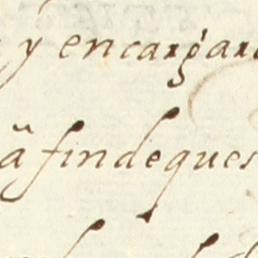 y encargar
ã fin de que s